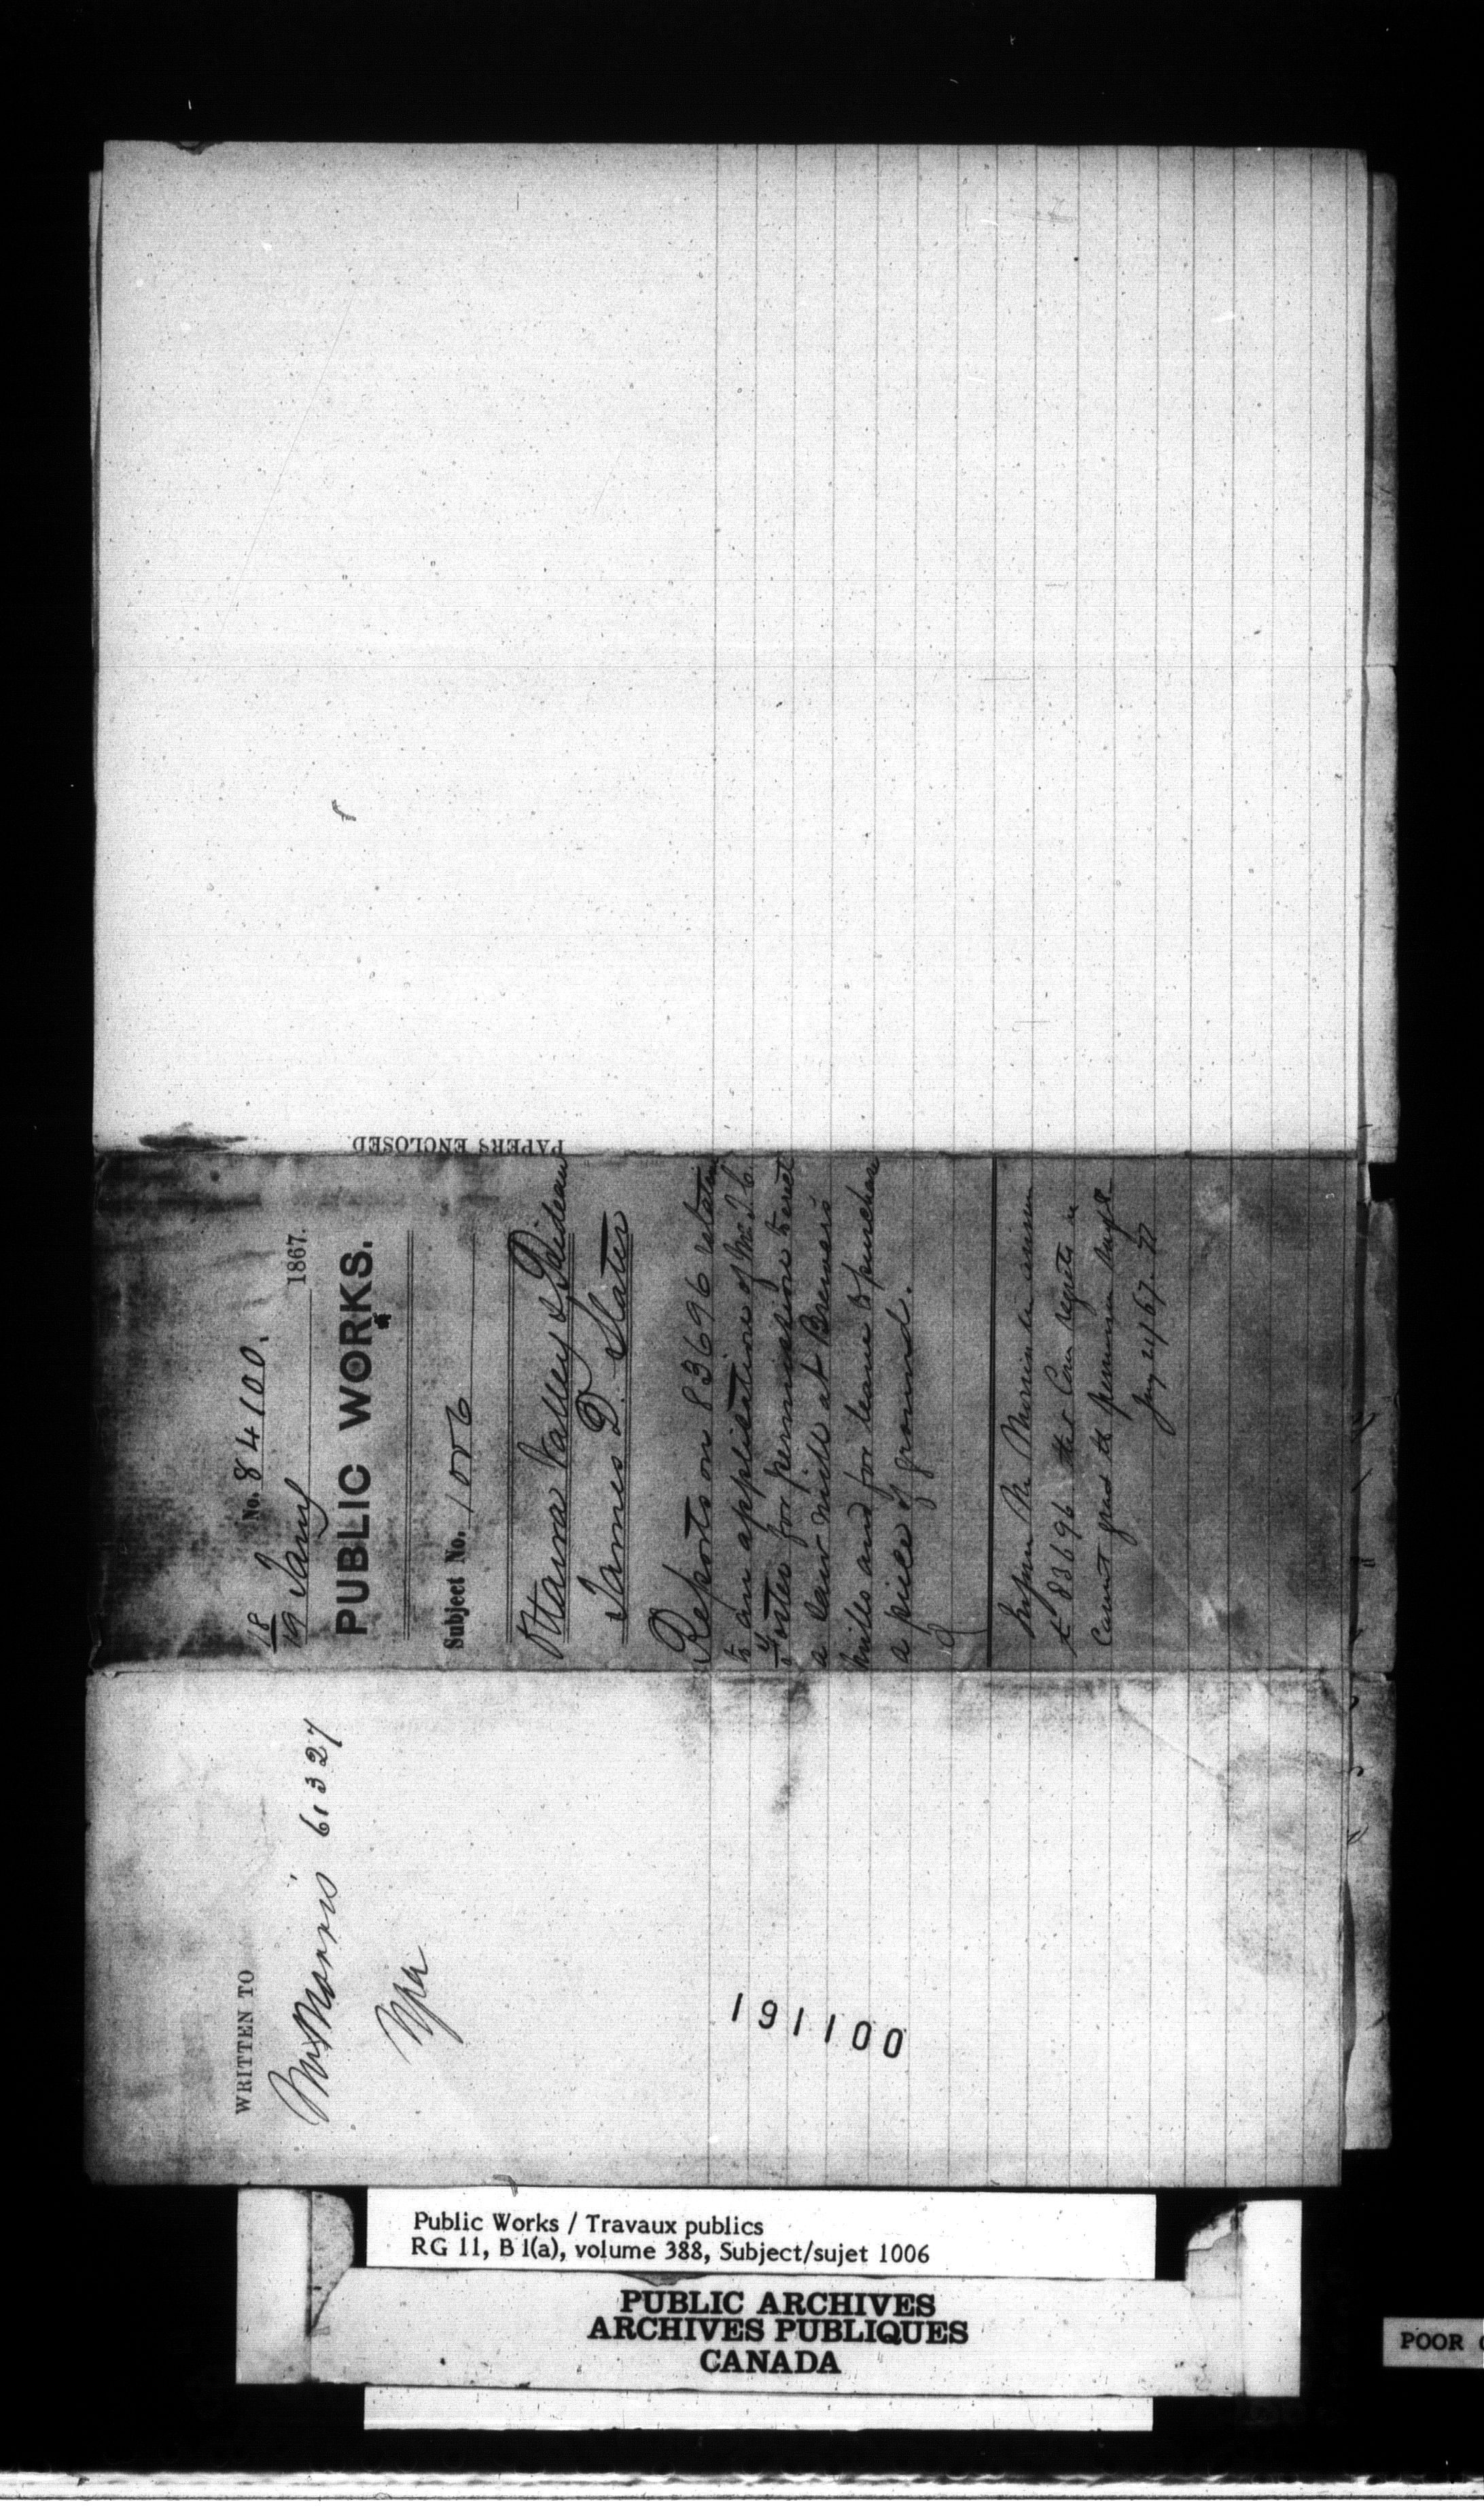 No. 84100.
18
19 Jany 1867.
PUBLIC WORKS.
Subject No. 1006
Ottawa Valley & Rideau
James D. Slater
Reports on 83696 relative
to an application of Mr. J. C.
Foster for permission to erect
a Saw mill at Brewers
mills and for leave to purchase
a piece of ground.
Inform Mr Morris in answer
83696 that Com regrets
cannot grant the permission
Jany 24/67.
PAPERS ENCLOSED
WRITTEN TO
Mr Morris 61327
191100
Public Works / Travaux publics
RG 11, B 1(a), volume 388, Subject/sujet 1006
PUBLIC ARCHIVES
ARCHIVES PUBLIQUES
CANADA
POOR